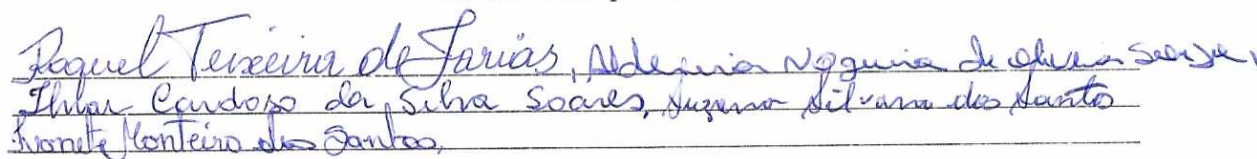 Raquel Teixeira de Farias, Aldenira Nogueira de Oliveira
Cardoso da Silva Soares, Suzana Silvana dos Santo
Ivonete Monteiro dos Santos,